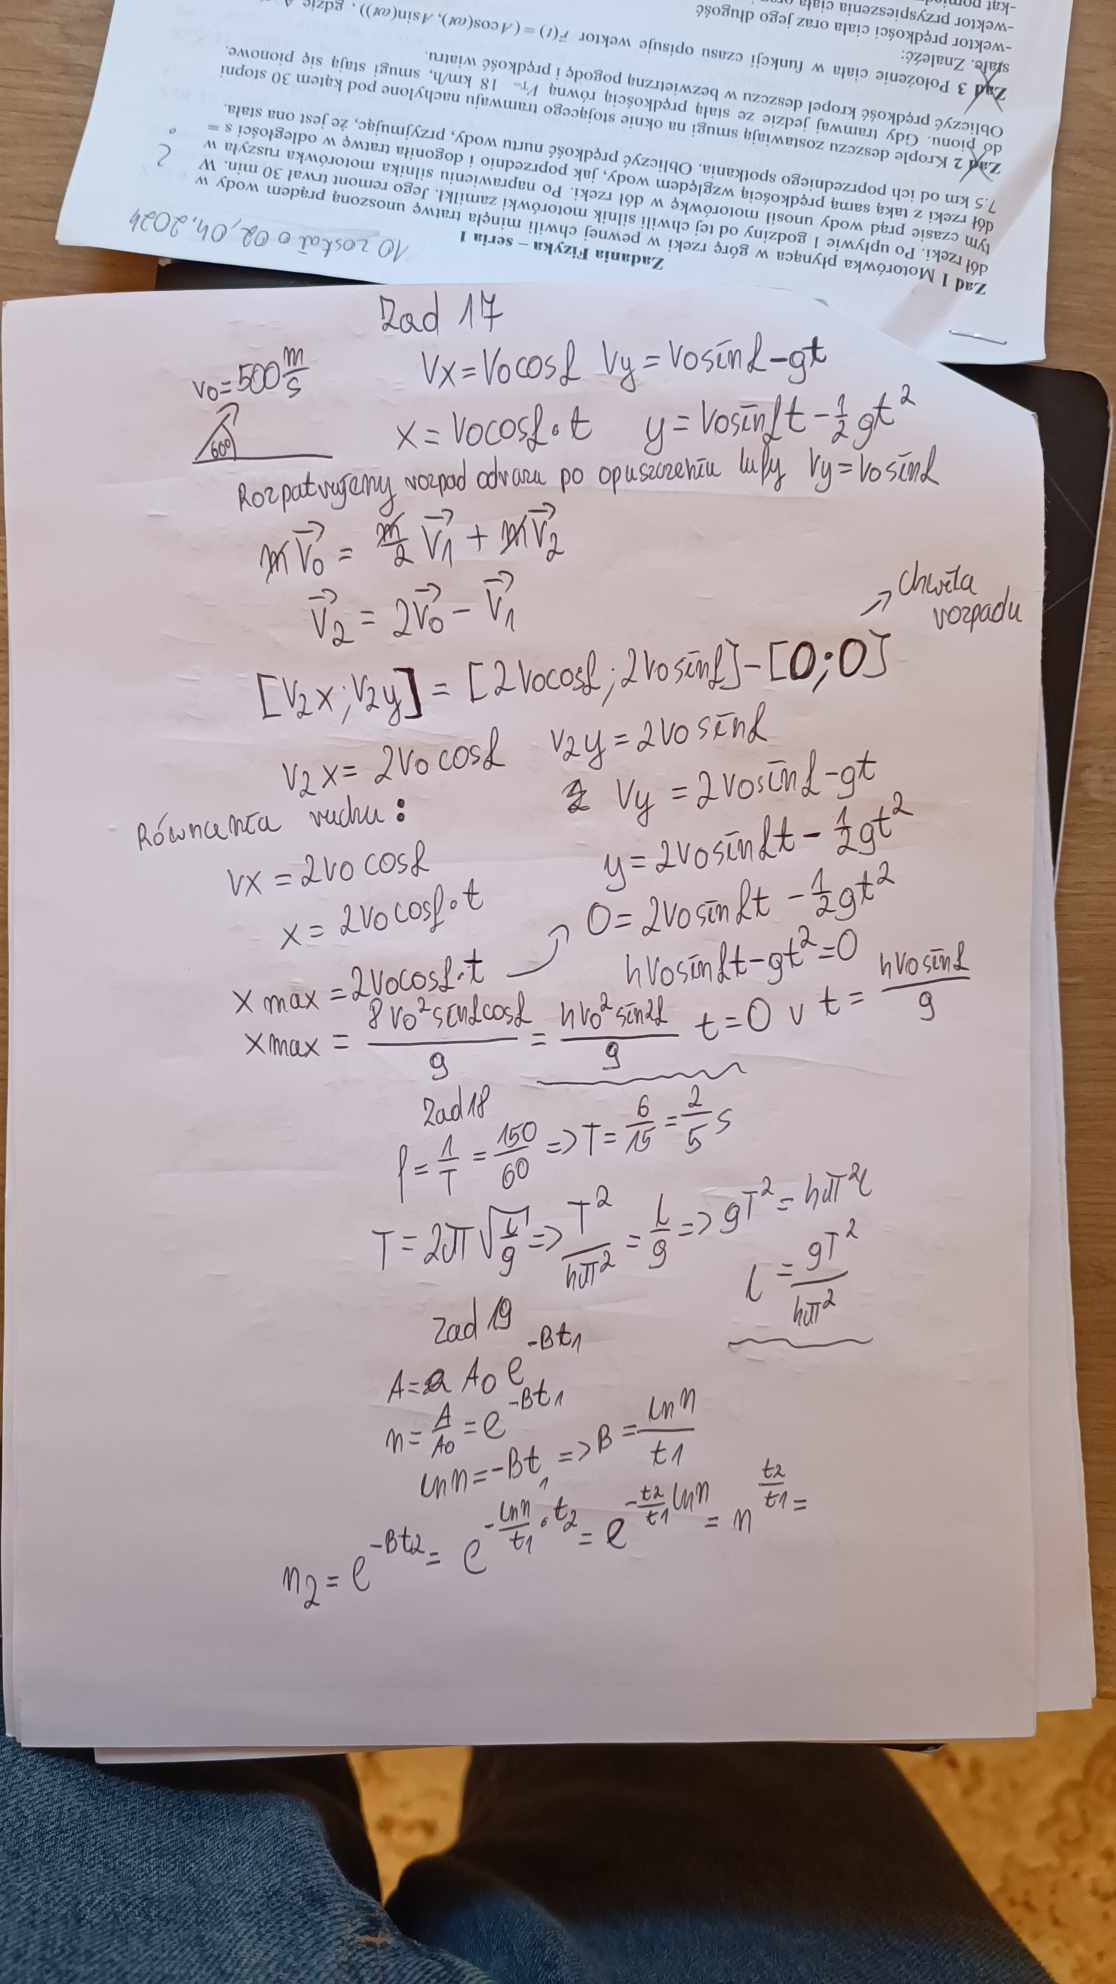 10 został o 02.04.2024
Zadania Fizyka – seria 1
Zad 1 Motorówka płynąca w górę rzeki w pewnej chwili minęła tratwę unoszoną prądem wody w
dół rzeki. Po upływie 1 godziny od tej chwili silnik motorówki zamilkł. Jego remont trwał 30 min. W
tym czasie prąd wody unosił motorówkę w dół rzeki. Po naprawieniu silnika motorówka ruszyła w
dół rzeki z taką samą prędkością względem wody, jak poprzednio i dogoniła tratwę w odległości s =
7.5 km od ich poprzedniego spotkania. Obliczyć prędkość nurtu wody, przyjmując, że jest ona stała.
Zad 2 Krople deszczu zostawiają smugi na oknie stojącego tramwaju nachylone pod kątem 30 stopni
do pionu. Gdy tramwaj jedzie ze stałą prędkością równą V_T= 18 km/h, smugi stają się pionowe.
Obliczyć prędkość kropel deszczu w bezwietrzną pogodę i prędkość wiatru.
Zad 3 Położenie ciała w funkcji czasu opisuje wektor r⃗(t) = (A cos(ωt), A sin(ωt)), gdzie
stałe. Znaleźć:
-wektor prędkości ciała oraz jego długość
-wektor przyspieszenia ciała
-kąt
Zad 17
v0=500 m/s Vx=V0cosα Vy=V0sinα-gt
60° x=V0cosα•t y=V0sinαt-1/2gt²
Rozpatrujemy rozpad odrazu po opuszczeniu lufy Vy=V0sinα
mV⃗0 = m/2 V⃗1 + mV⃗2
V⃗2 = 2V⃗0 - V⃗1
→ chwila rozpadu
[V2x;V2y] = [2V0cosα;2V0sinα]-[0;0]
V2x=2V0cosα V2y=2V0sinα
Równania ruchu: Vy=2V0sinα-gt
Vx=2V0cosα y=2V0sinαt-1/2gt²
x=2V0cosα•t 0=2V0sinαt-1/2gt²
x max=2V0cosα•t 4V0sinαt-gt²=0
x max = 8V0²sinαcosα/g = 4V0²sin2α/g t=0 v t=4V0sinα/g
Zad 18
f=1/T=150/60 => T=6/15=2/5 s
T=2π√(l/g) => T²/4π²=l/g => gT²=4π²l
l=gT²/4π²
Zad 19
A= A0 e^-Bt1
n=A/A0=e^-Bt1
ln n=-Bt1 => B=ln n/t1
n2=e^-Bt2=e^-ln n/t1•t2=e^-t2/t1 ln n=n^t2/t1=